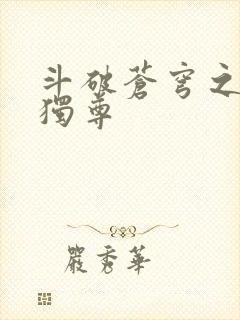 斗破蒼穹之
獨尊
嚴秀華